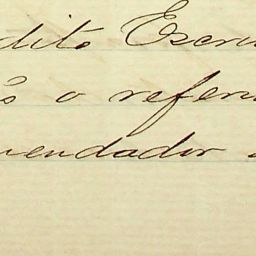 dito Escri
s o refer
mendador